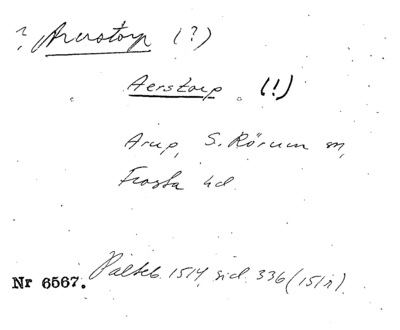 ? Arerstorp (?)
Aerstorp. (!)
Arup, S. Rörum sn,
Frosta hd.
Nr 6567. Palteb. 1514, sid. 336 (151r).